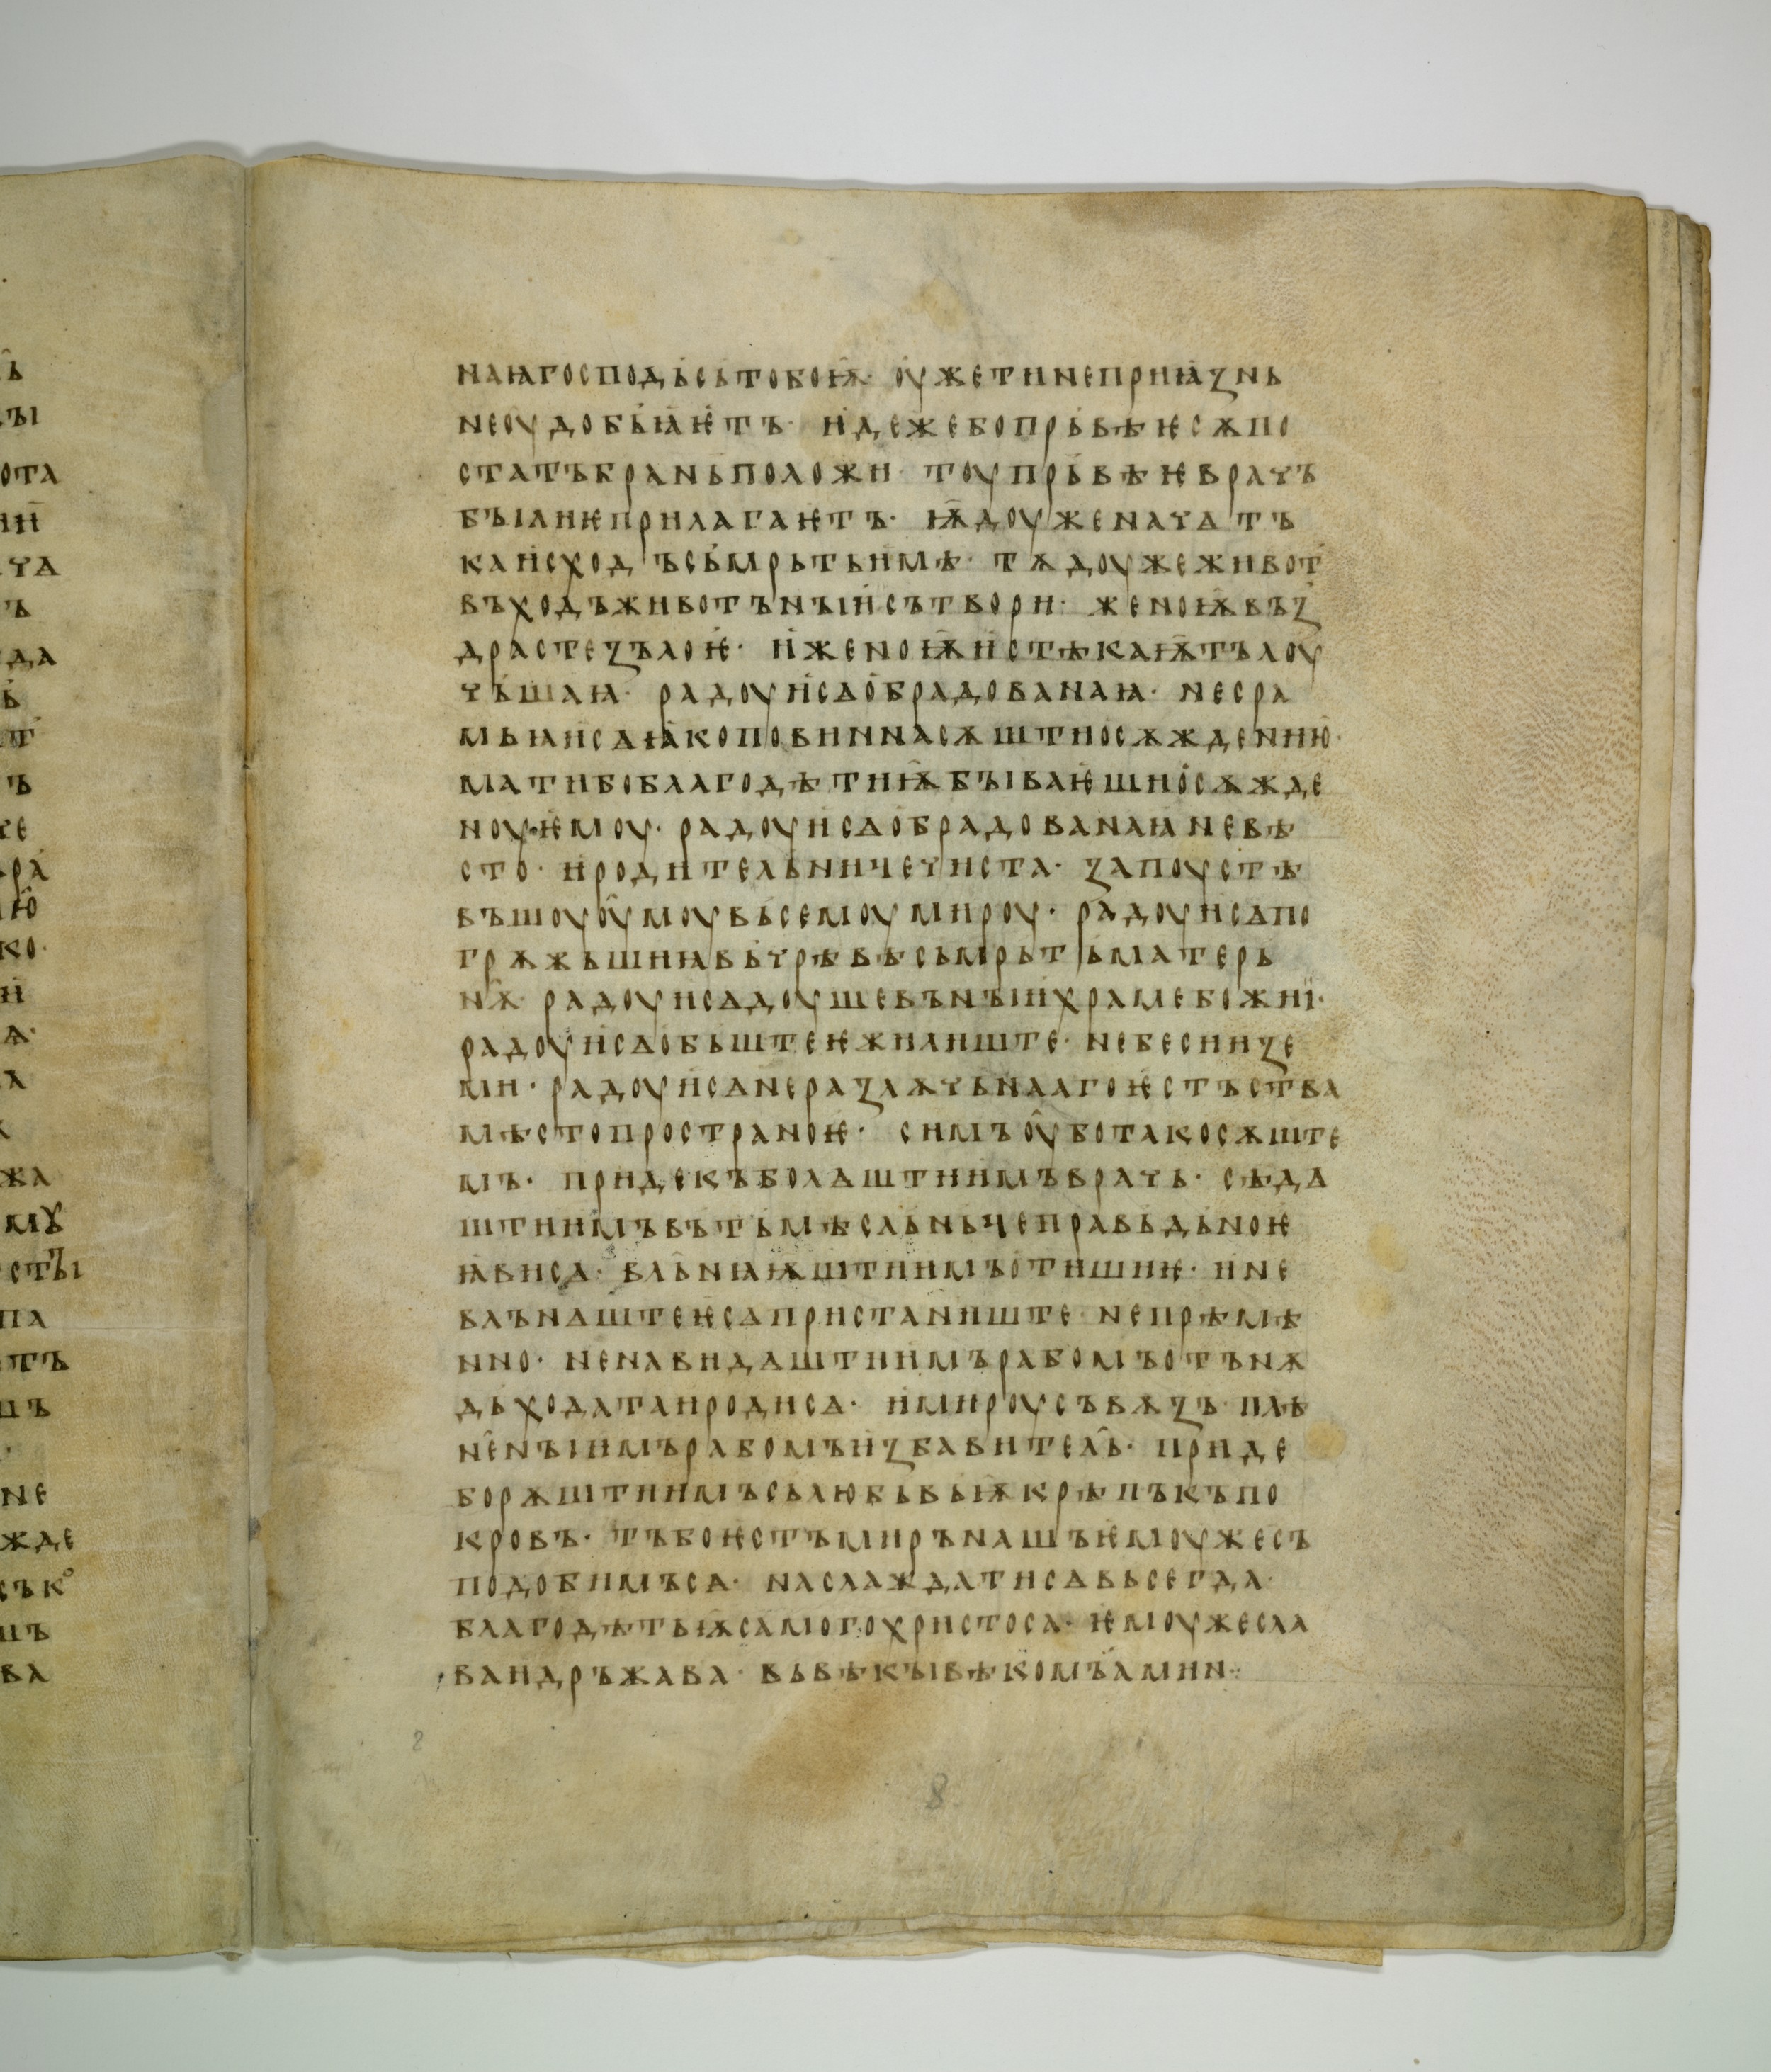 наꙗгосподьсътобоѭ· оужетинеприꙗзнь
неоудобьꙗѥтъ· идежебопрьвѣѥсѫпо
статъбраньположи· тоупрьвѣѥврачъ
былиѥприлагаѥтъ· ѭдоуженачѧтъ
каисходъсьмрьтьимѣ· тѫдоужеживот
въходъживотъныисътвори· женоѭвъз
драстезълоѥ· иженоѭистѣкаѭтълоу
чьшаꙗ· радоуисѧобрадованаꙗ· несра
мьꙗисѧꙗкоповиннасѫштиосѫждению·
матибоблагодѣтиѭбываѥшиосѫжде
ноуѥмоу· радоуисѧобрадованаꙗневѣ
сто· иродительничечиста· запоустѣ
въшоуоумоувьсемоумироу· радоуисѧпо
грѫжьшиꙗвьчрѣвѣсъмрьтьматерь
нѫ· радоуисѧдоушевъныихрамебожиі·
радоуисѧобьштеѥжилиште· небесиизе
ми· радоуисѧнеразлѫчьнаагоѥстъства
мѣстопространоѥ· симъоуботакосѫште
мъ· придекъболѧштиимъврачь· сѣдѧ
штиимъвътьмѣсльньчеправьдьноѥ
ꙗвисѧ· вльнꙗѭштиимъотишиѥ· ине
влънѧштеѥсѧпристаниште· непрѣмѣ
нно· ненавидѧштиимърабомъотънѫ
дьходатаиродисѧ· имироусъвѫзъ· плѣ
неныимърабомъизбавитель· приде
борѫштиимъсьлюбьвьѭкрѣпъкъпо
кровъ· тъбоѥстъмирънашъѥмоужесъ
подобимъсѧ· наслаждатисѧвьсегда·
благодѣтьѭсамогохристоса· ѥмоужесла
ваидръжава· вьвѣкывѣкомъамин·:
2
8